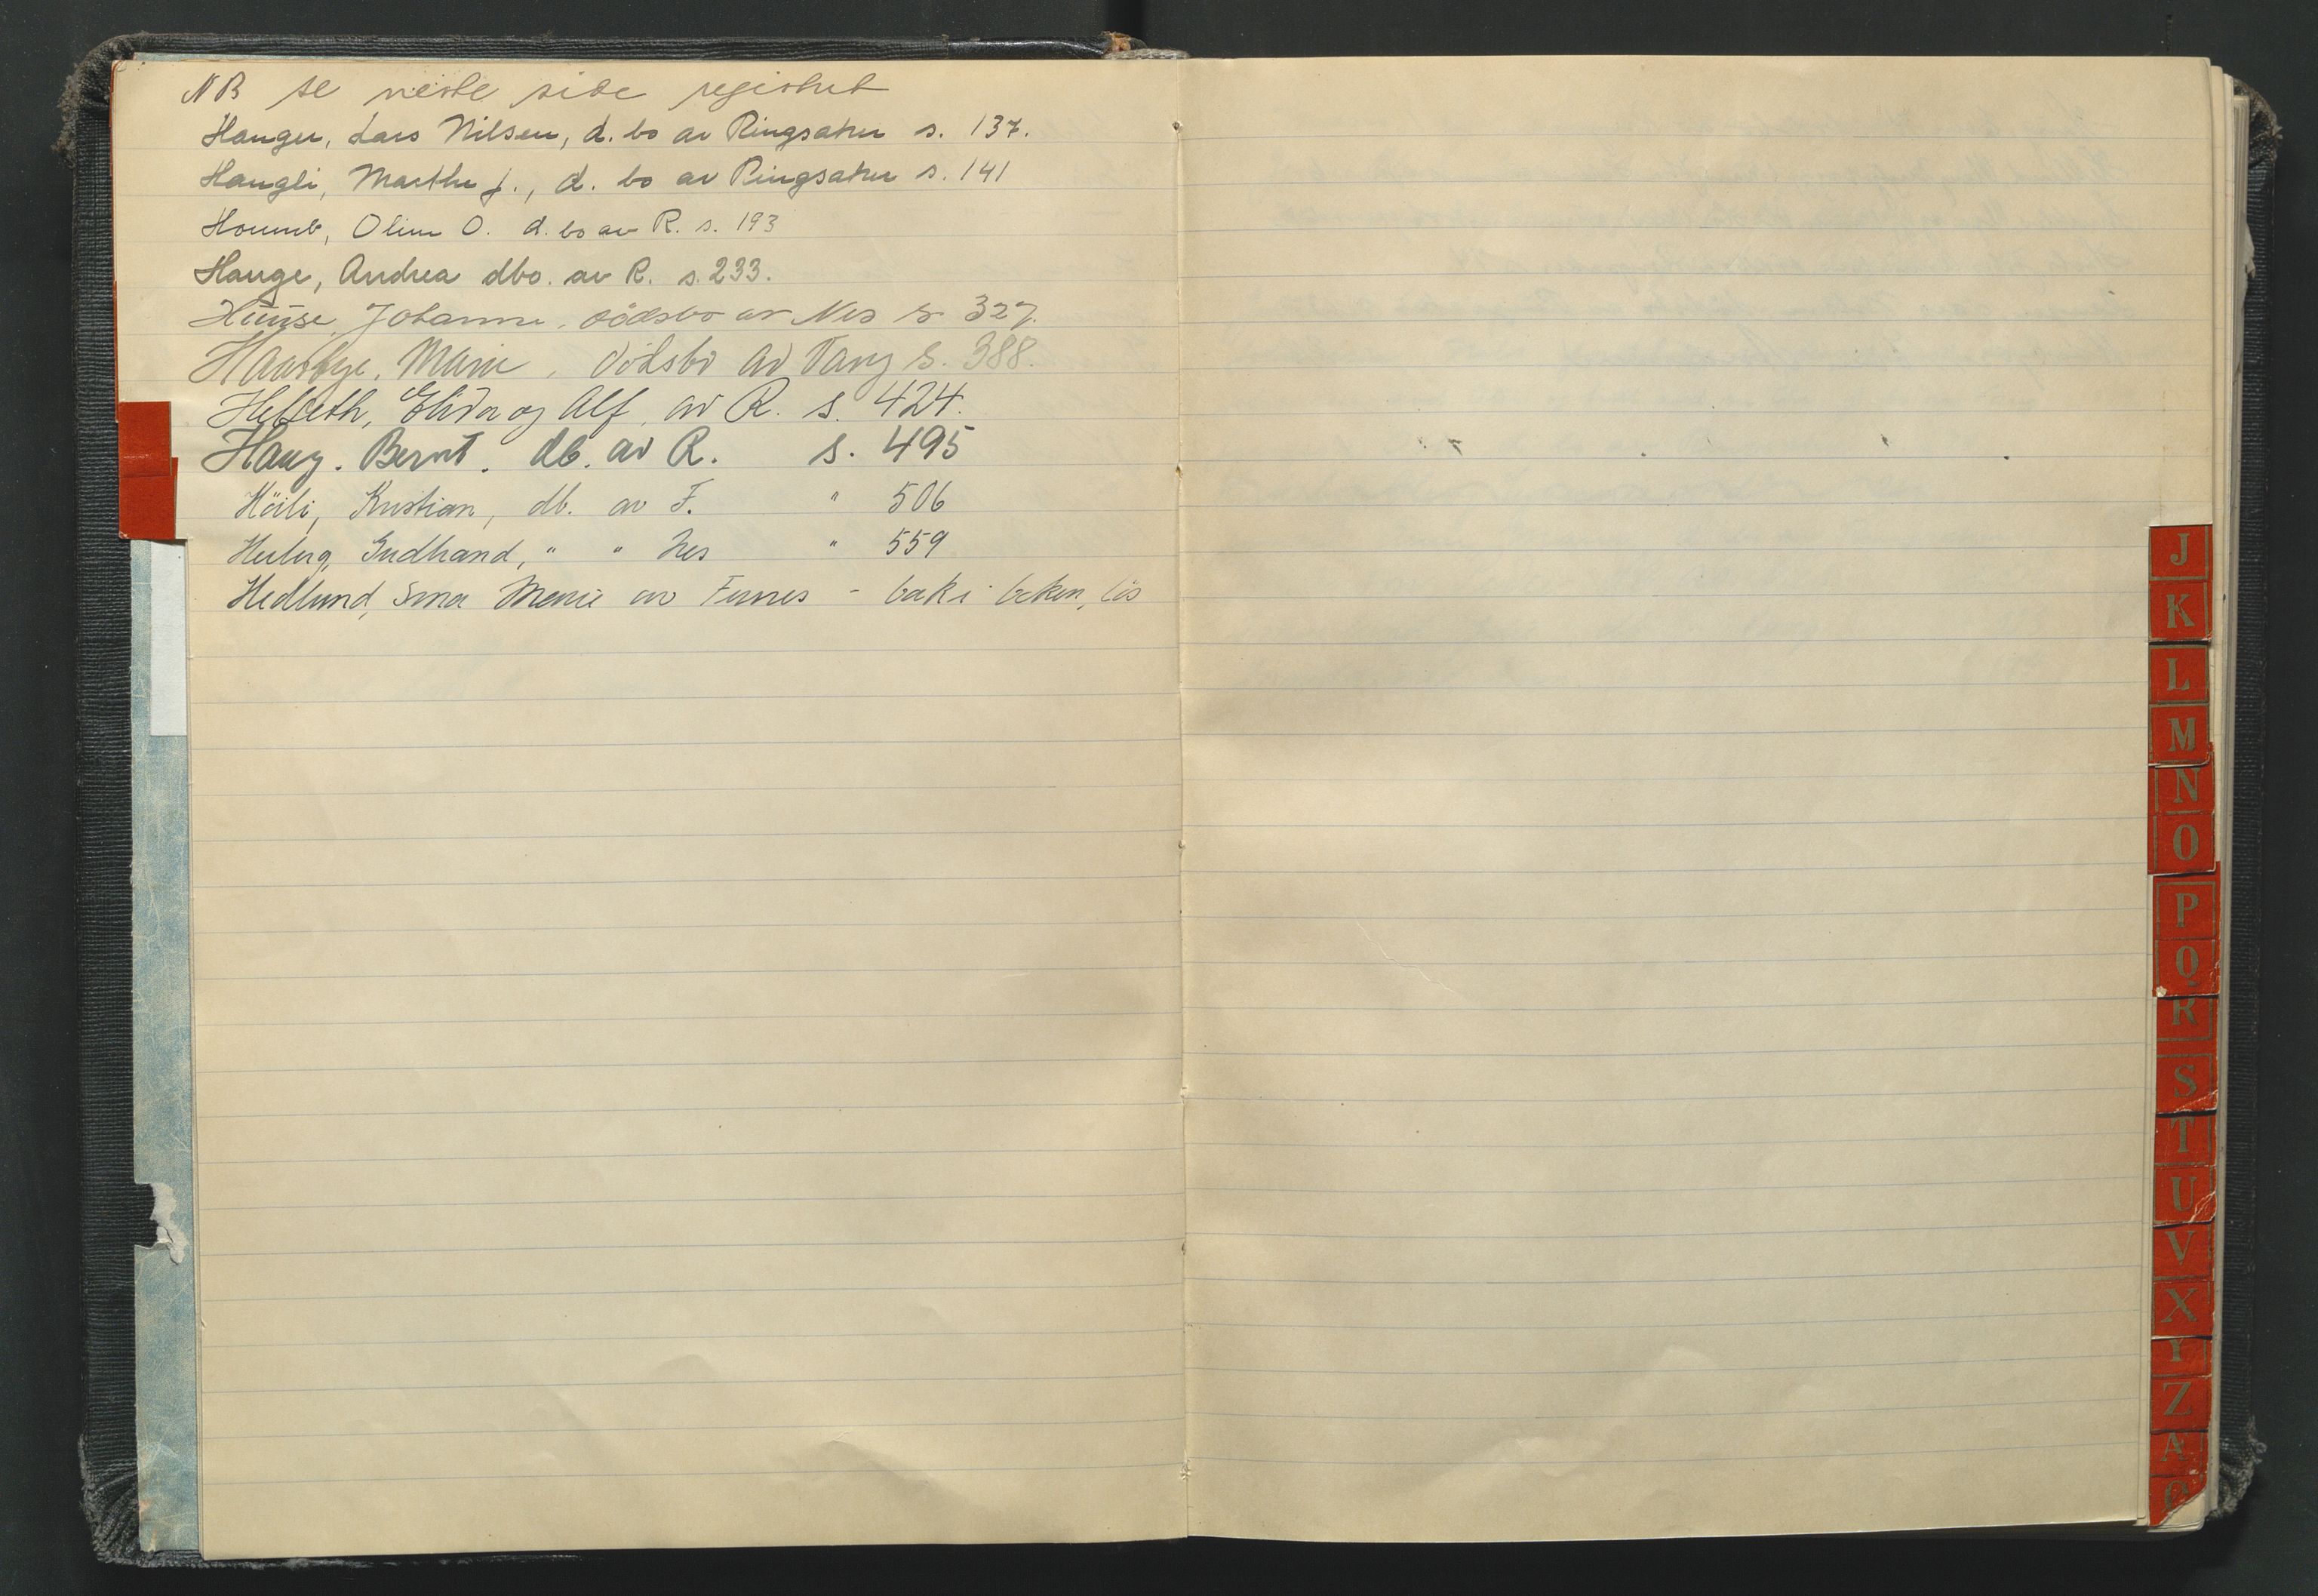 NB se neste side registret
Hauger, Lars Nilsen, d. bo av Ringsaker s. 137.
Haugli, Marthe J., d. bo av Ringsaker s. 141
Homb, Oline O. d. bo av R. s. 193
Hauge, Andrea dbo. av R. s. 233.
Johanne, dödsbo av Nes s. 327.
Haarbye, Marie, dödsbo av Vang s. 388.
Helseth, og Alf, av R. s. 424.
Haug. Bernt. db. av R. s. 495
Höili, Kristian, db. av F. " 506
Gudbrand, " " Nes " 559
Hedlund, Marie av Furnes - bak i boken, lös
J
K
L
M
N
O
P
Q
R
S
T
U
V
X
Y
Z